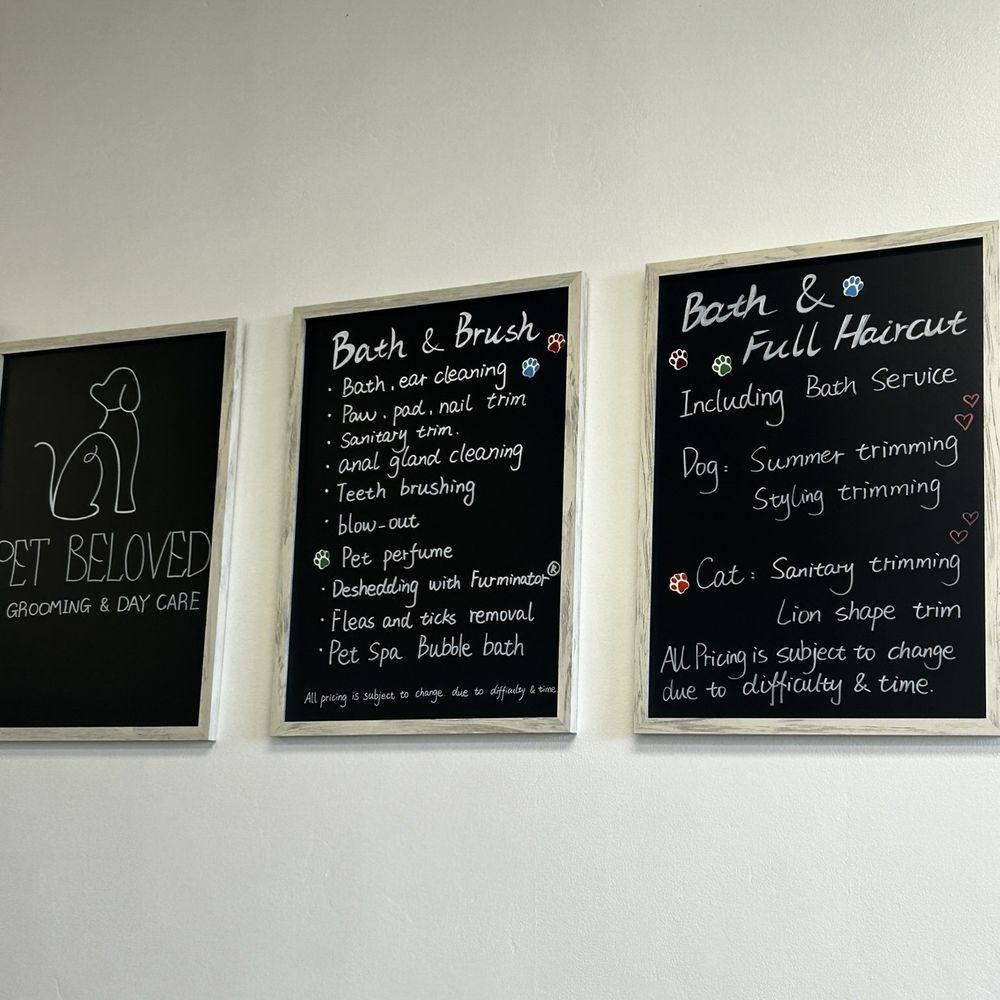 PET BELOVED
GROOMING & DAY CARE
Bath & Brush
· Bath, ear cleaning
· Paw, pad, nail trim
· Sanitary trim.
· anal gland cleaning
· Teeth brushing
· blow-out
Pet perfume
· Deshedding with Furminator®
· Fleas and ticks removal
· Pet Spa Bubble bath
All pricing is subject to change due to difficulty & time
Bath &
Full Haircut
Including Bath Service
Dog: Summer trimming
Styling trimming
Cat: Sanitary trimming
Lion shape trim
All Pricing is subject to change
due to difficulty & time.